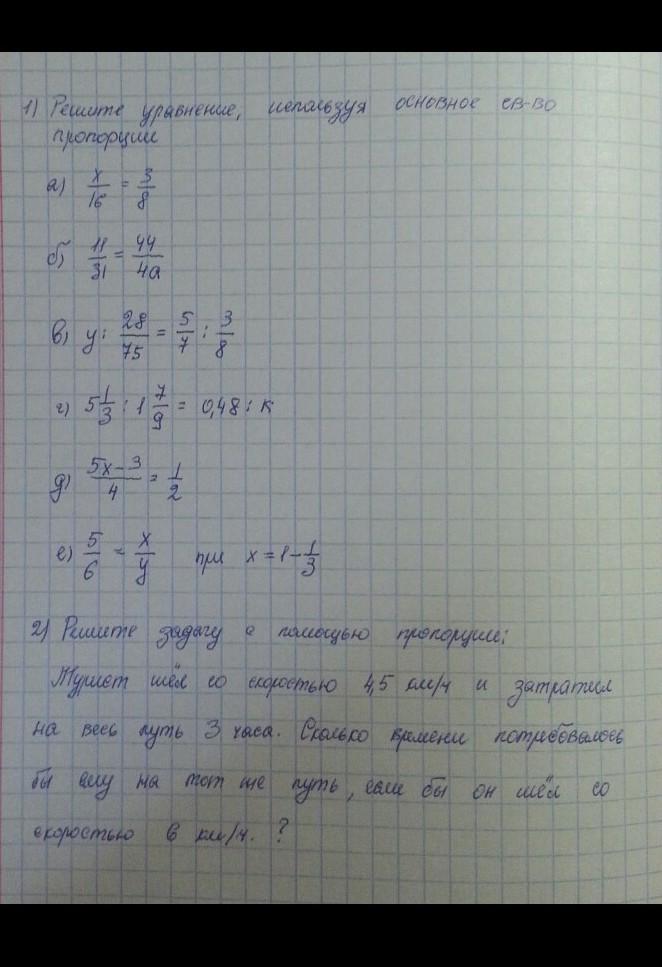 1) Решите уравнение, используя основное св-во
пропорции
а) x/16 = 3/8
б) 11/31 = 44/4a
в) y : 28/75 = 5/7 : 3/8
г) 5 1/3 : 1 7/9 = 0,48 : к
д) (5x-3)/4 = 1/2
е) 5/6 = x/y при x = 1-1/3
2) Решите задачу с помощью пропорции:
Турист шёл со скоростью 4,5 км/ч и затратил
на весь путь 3 часа. Сколько времени потребовалось
бы ему на тот же путь, если бы он шёл со
скоростью 6 км/ч. ?